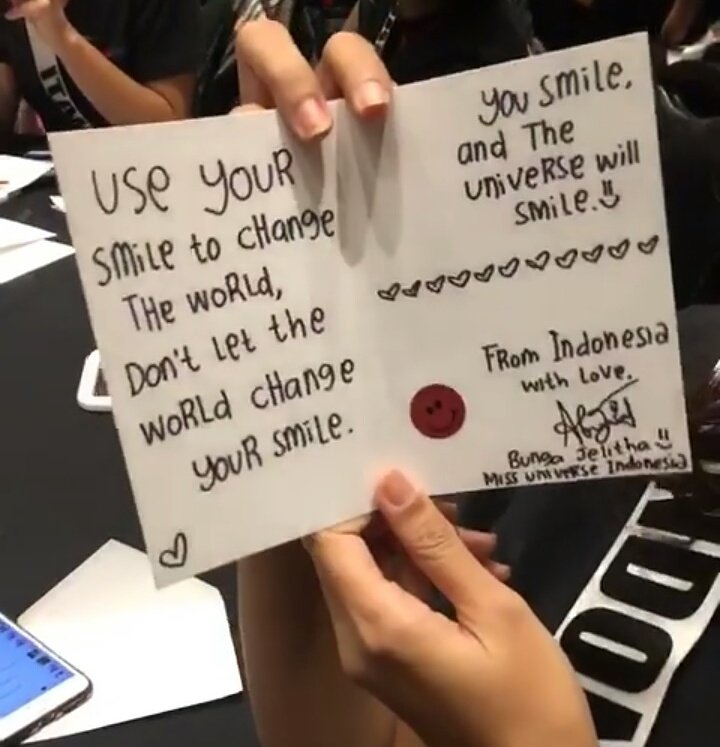 USE YOUR
SMILE to CHANGE
THE WORLD,
DON'T LET the
WORLD CHANGE
YOUR SMILE.
YOU SMILE,
and THE
UNIVERSE will
SMILE.
FROM INDONESIA
with Love.
BUNGA JELITHA
MISS UNIVERSE INDONESIA